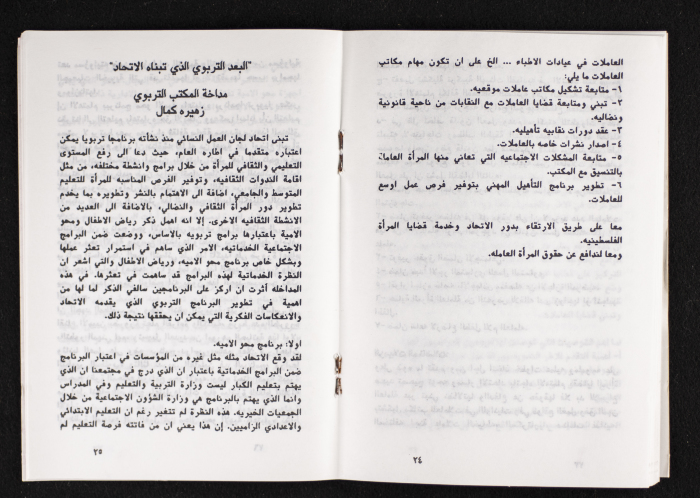 العاملات في عيادات الاطباء ... الخ على ان تكون مهام مكاتب
العاملات ما يلي:
١- متابعة تشكيل مكاتب عاملات موقعيه.
٢- تبني ومتابعة قضايا العاملات مع النقابات من ناحية قانونية
ونضاليه.
٣- عقد دورات نقابيه تأهيليه.
٤- اصدار نشرات خاصه بالعاملات.
٥- متابعة المشكلات الاجتماعيه التي تعاني منها المرأة العاملة،
بالتنسيق مع المكتب.
٦- تطوير برنامج التأهيل المهني بتوفير فرص عمل اوسع
للعاملات.
معا على طريق الارتقاء بدور الاتحاد وخدمة قضايا المرأة
الفلسطينيه.
ومعا لندافع عن حقوق المرأة العامله.
٢٤
"البعد التربوي الذي تبناه الاتحاد"
مداخة المكتب التربوي
زهيره كمال
تبنى اتحاد لجان العمل النسائي منذ نشأته برنامجا تربويا يمكن
اعتباره متقدما في اطاره العام، حيث دعا الى رفع المستوى
التعليمي والثقافي للمرأة من خلال برامج وانشطة مختلفه، من مثل
اقامة الندوات الثقافيه، وتوفير الفرص المناسبه للمرأة للتعليم
المتوسط والجامعي، اضافة الى الاهتمام بالنشر وتطويره بما يخدم
تطوير دور المرأة الثقافي والنضالي، بالاضافة الى العديد من
الانشطة الثقافيه الاخرى. إلا انه اهمل ذكر رياض الاطفال ومحو
الامية باعتبارها برامج تربويه بالاساس، ووضعت ضمن البرامج
الاجتماعية الخدماتيه، الامر الذي ساهم في استمرار تعثر عملها
وبشكل خاص برنامج محو الاميه، ورياض الاطفال والتي اشعر ان
النظرة الخدماتية لهذه البرامج قد ساهمت في تعثرها. في هذه
المداخله أثرت ان اركز على البرنامجين سالفي الذكر لما لها من
اهمية في تطوير البرنامج التربوي الذي يقدمه الاتحاد
والانعكاسات الفكرية التي يمكن ان يحققها نتيجة ذلك.
اولا: برنامج محو الاميه.
لقد وقع الاتحاد مثله مثل غيره من المؤسسات في اعتبار البرنامج
ضمن البرامج الخدماتية باعتبار ان الذي درج في مجتمعنا ان الذي
يهتم بتعليم الكبار ليست وزارة التربية والتعليم وفي المدراس
وانما الذي يهتم بالبرنامج هي وزارة الشؤون الاجتماعية من خلال
الجمعيات الخيريه. هذه النظرة لم تتغير رغم ان التعليم الابتدائي
والاعدادي الزاميين. إن هذا يعني ان من فاتته فرصة التعليم لم
٢٥